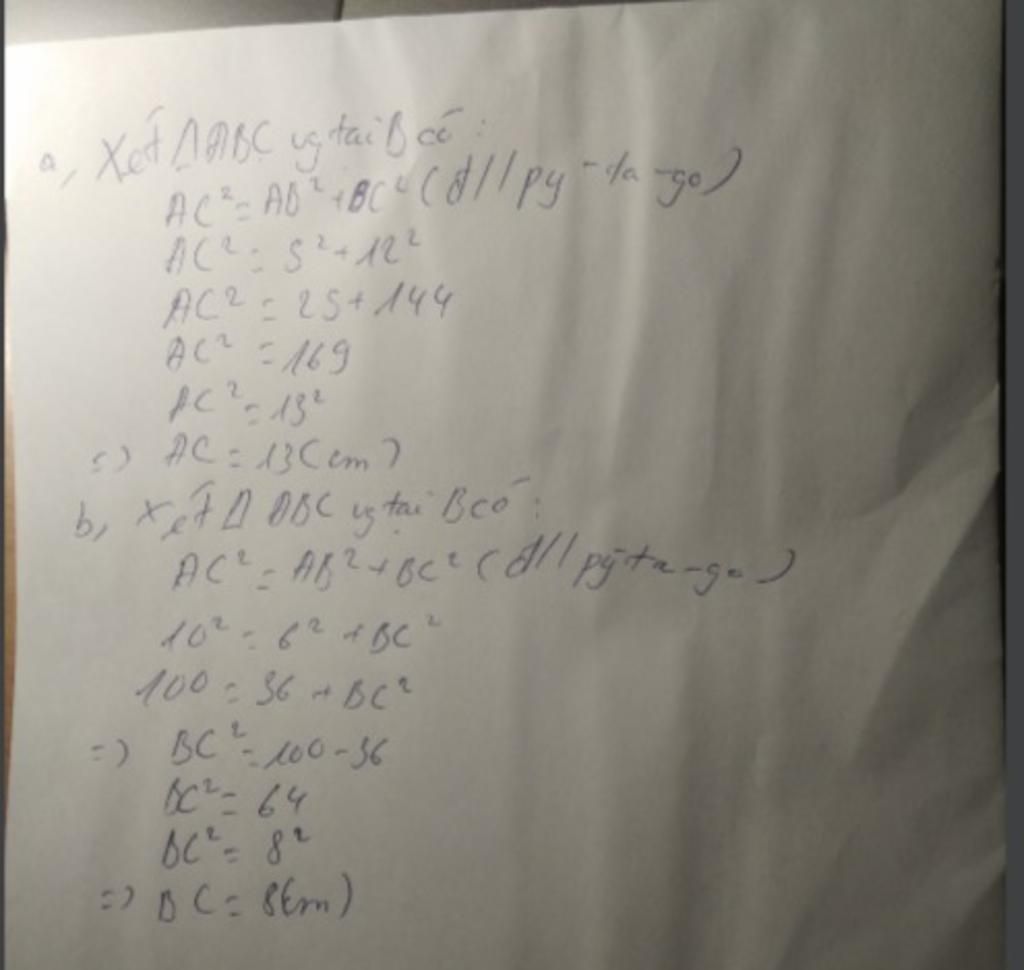 a, Xét ΔABC vg tại B có :
AC² = AB² + BC² (đ/l py-ta-go)
AC² = 5² + 12²
AC² = 25 + 144
AC² = 169
AC² = 13²
=) AC = 13 (cm)
b, Xét Δ ABC vg tại B có :
AC² = AB² + BC² (đ/l py-ta-go)
10² = 6² + BC²
100 = 36 + BC²
=) BC² = 100 - 36
BC² = 64
BC² = 8²
=) BC = 8(cm)